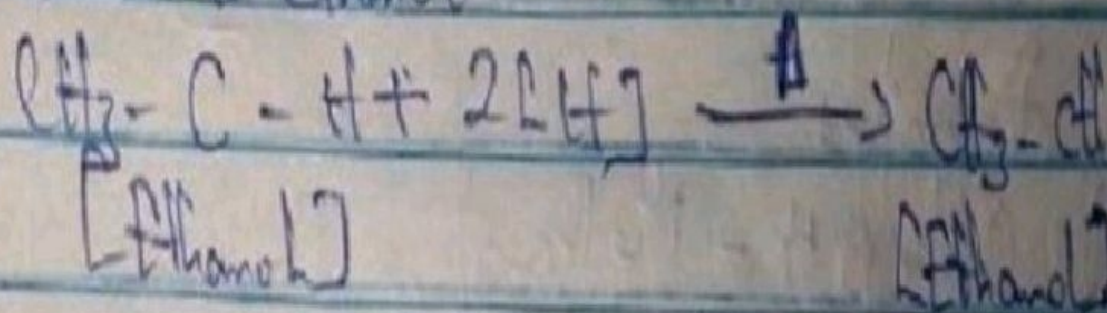 CH₃ - C - H + 2[H] ⟶ CH₃ - CH
[Ethanol] [Ethanol]